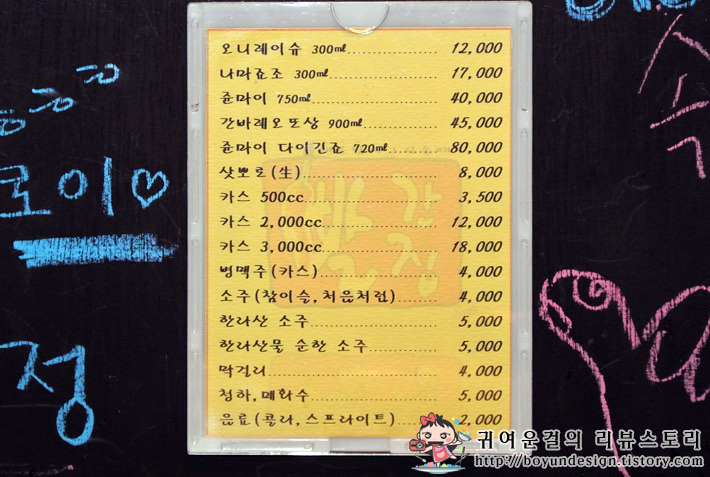 오니레이슈 300㎖ 12,000
나마죠조 300㎖ 17,000
쥰마이 750㎖ 40,000
간바레오또상 900㎖ 45,000
쥰마이 다이긴죠 720㎖ 80,000
삿뽀로(生) 8,000
카스 500cc 3,500
카스 2,000cc 12,000
카스 3,000cc 18,000
병맥주(카스) 4,000
소주(참이슬,처음처럼) 4,000
한라산 소주 5,000
한라산물 순한 소주 5,000
막걸리 4,000
청하,매화수 5,000
음료(콜라,스프라이트) 2,000
로이♡
정
속
귀여운걸의 리뷰스토리
http://boyundesign.tistory.com